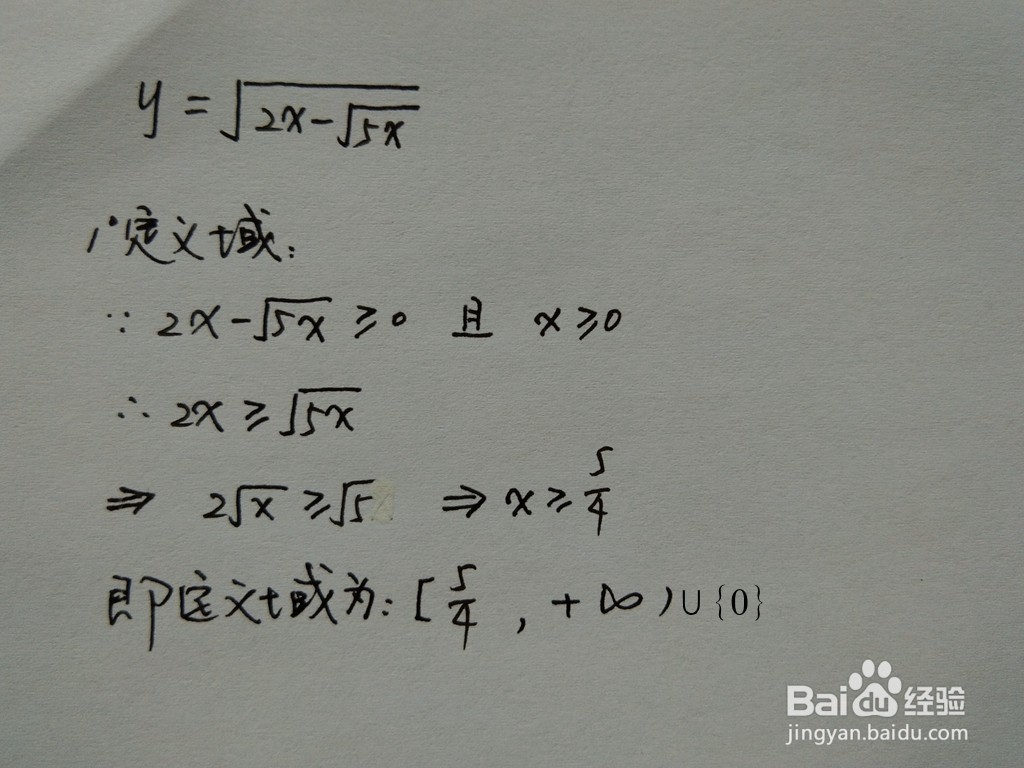 y=√(2x-√(5x))
1°定义域:
∵ 2x-√(5x) ≥0 且 x≥0
∴ 2x≥√(5x)
⇒ 2√x ≥√5 ⇒ x≥5/4
即定义域为:[5/4, +∞)∪{0}
Bai du 经验
jingyan.baidu.com